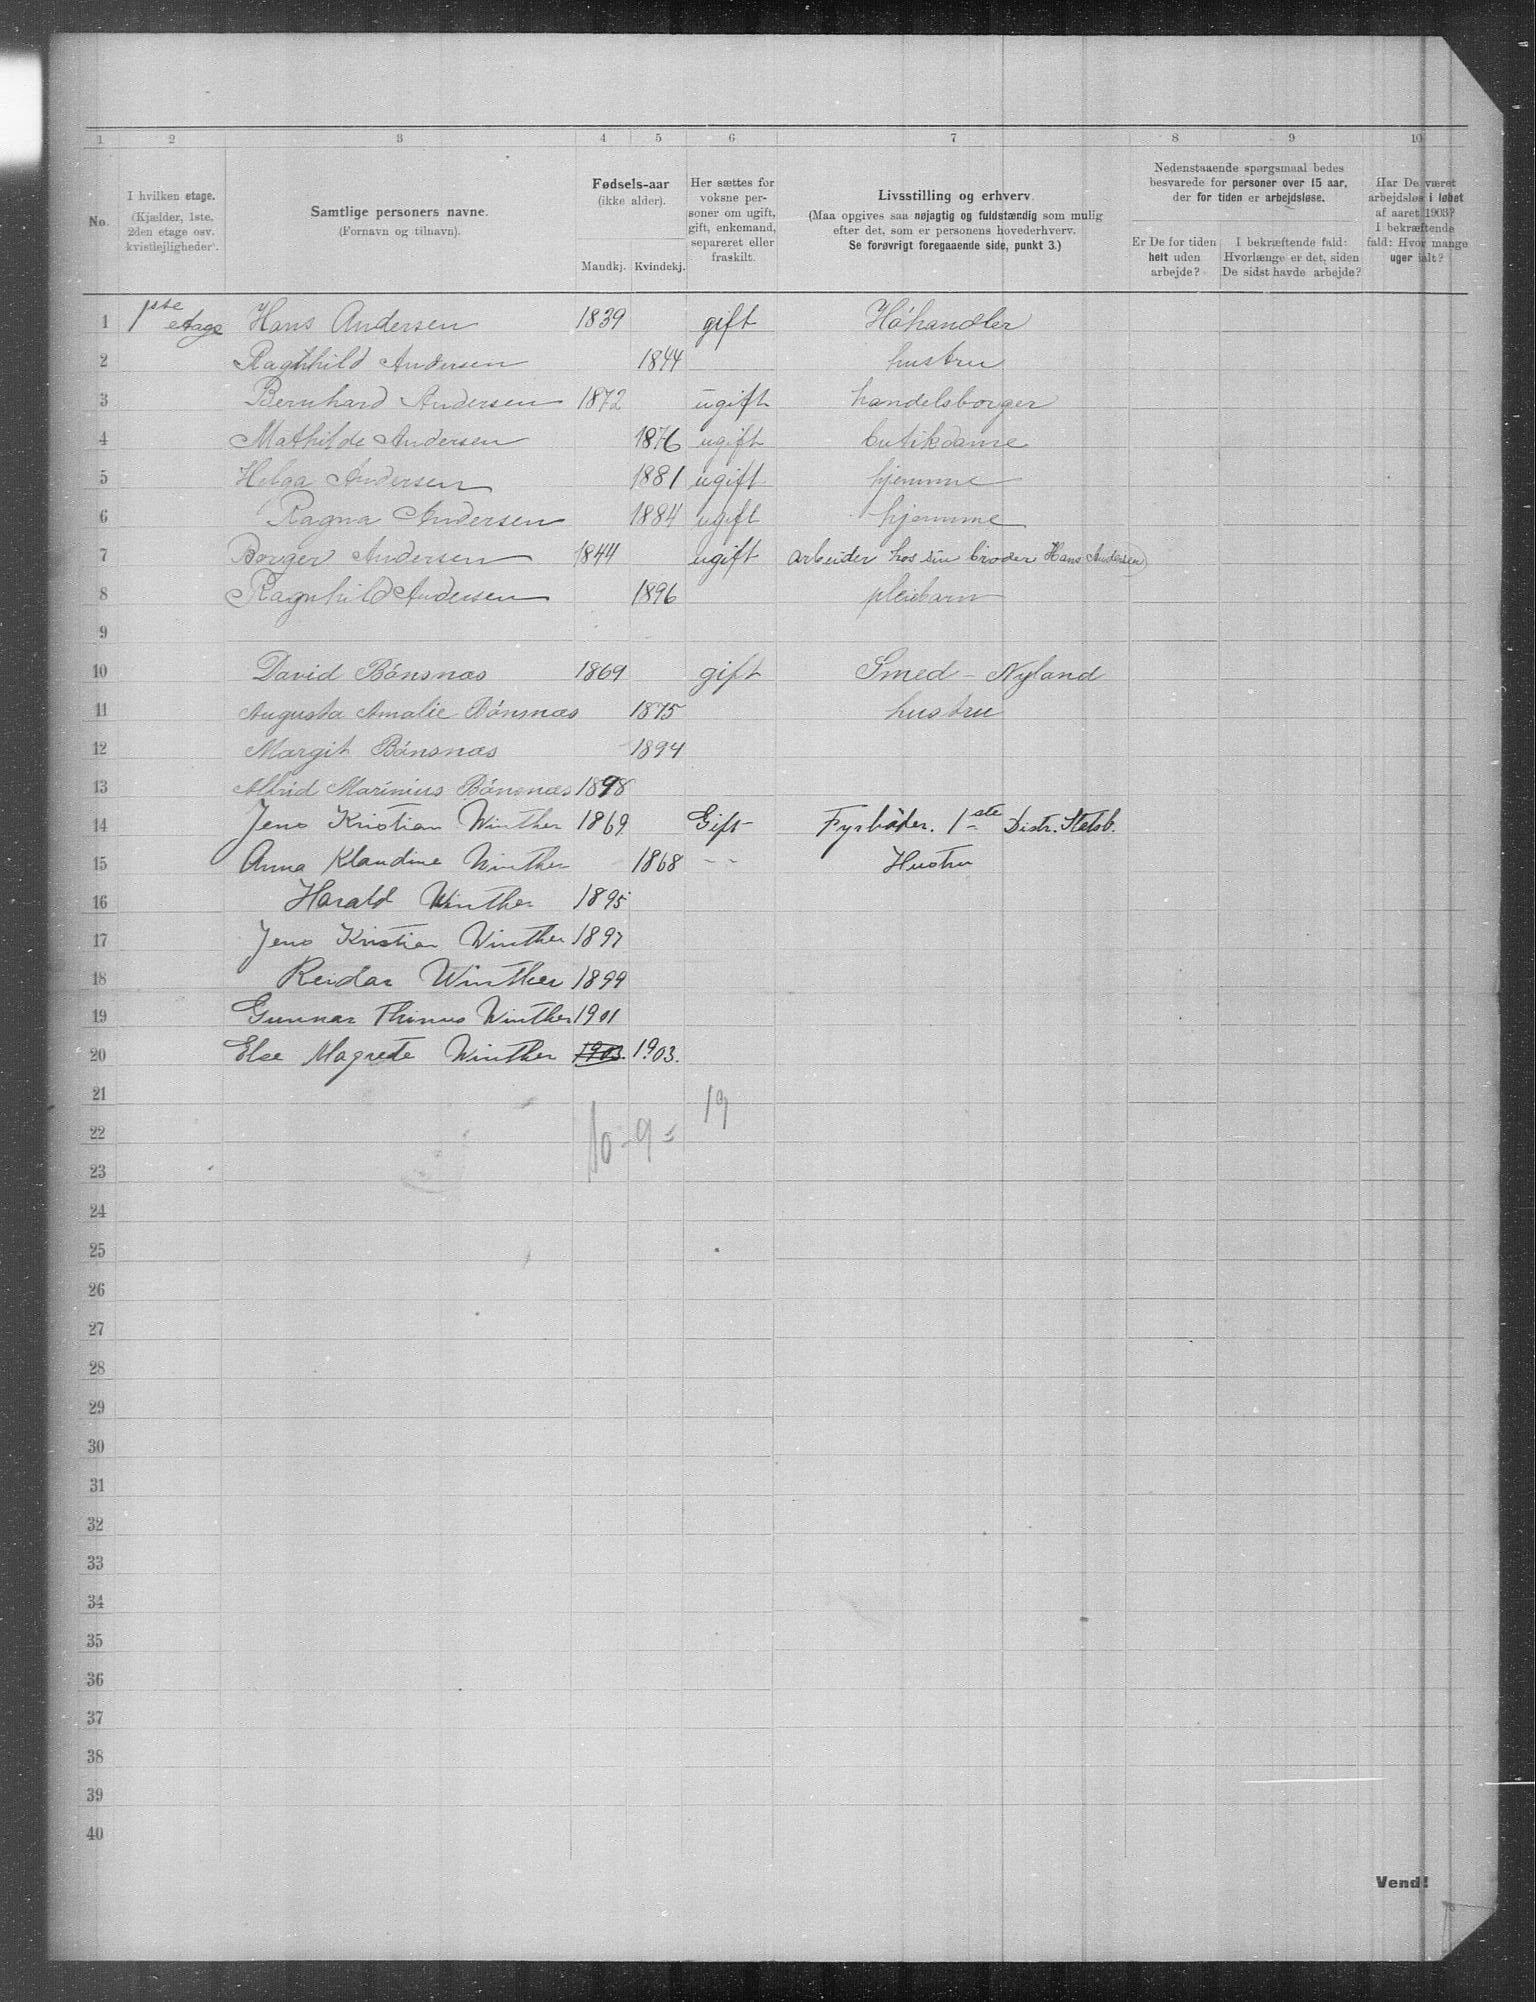 1 2 3 4 5 6 7 8 9 10
No.
I hvilken etage.
(Kjælder, 1ste,
2den etage osv.
kvistleiligheder).
Samtlige personers navne.
(Fornavn og tilnavn).
Fødsels-aar
(ikke alder).
Mandkj. Kvindekj.
Her sættes for
voksne per-
soner om ugift,
gift, enkemand,
separeret eller
fraskilt.
Livsstilling og erhverv.
(Maa opgives saa nøjagtig og fuldstændig som mulig
efter det, som er personens hovederhverv.
Se forøvrigt foregaaende side, punkt 3.)
Nedenstaaende spørgsmaal bedes
besvarede for personer over 15 aar,
der for tiden er arbejdsløse.
Er De for tiden
helt uden
arbejde?
I bekræftende fald:
Hvorlænge er det, siden
De sidst havde arbejde?
Har De været
arbejdsløs i løbet
af aaret 1903?
I bekræftende
fald: Hvor mange
uger ialt?
1 1ste etage Hans Andersen 1839 gift Høhandler
2 Ragnhild Andersen 1844 hustru
3 Bernhard Andersen 1872 ugift handelsborger
4 Mathilde Andersen 1876 ugift butikdame
5 Helga Andersen 1881 ugift hjemme
6 Ragna Andersen 1884 ugift hjemme
7 Borger Andersen 1844 ugift arbeider hos sin broder Hans Andersen)
8 Ragnhild Andersen 1896 pleibarn
9
10 David Bónsnæs 1869 gift Smed - Nyland
11 Augusta Amalie Bónsnæs 1875 hustru
12 Margit Bónsnæs 1894
13 Marinius Bónsnæs 1898
14 Jens Kristian Winther 1869 Gift Fyrbøder. 1ste Distr. Statsb.
15 Anna Klaudine Winther 1868 - - Hustru
16 Harald Winther 1895
17 Jens Kristian Winther 1897
18 Reidar Winther 1899
19 Gunnar Thinus Winther 1901
20 Else Magrete Winther 1903. 1903.
21
22 10-9= 19
23
24
25
26
27
28
29
30
31
32
33
34
35
36
37
38
39
40
Vend!